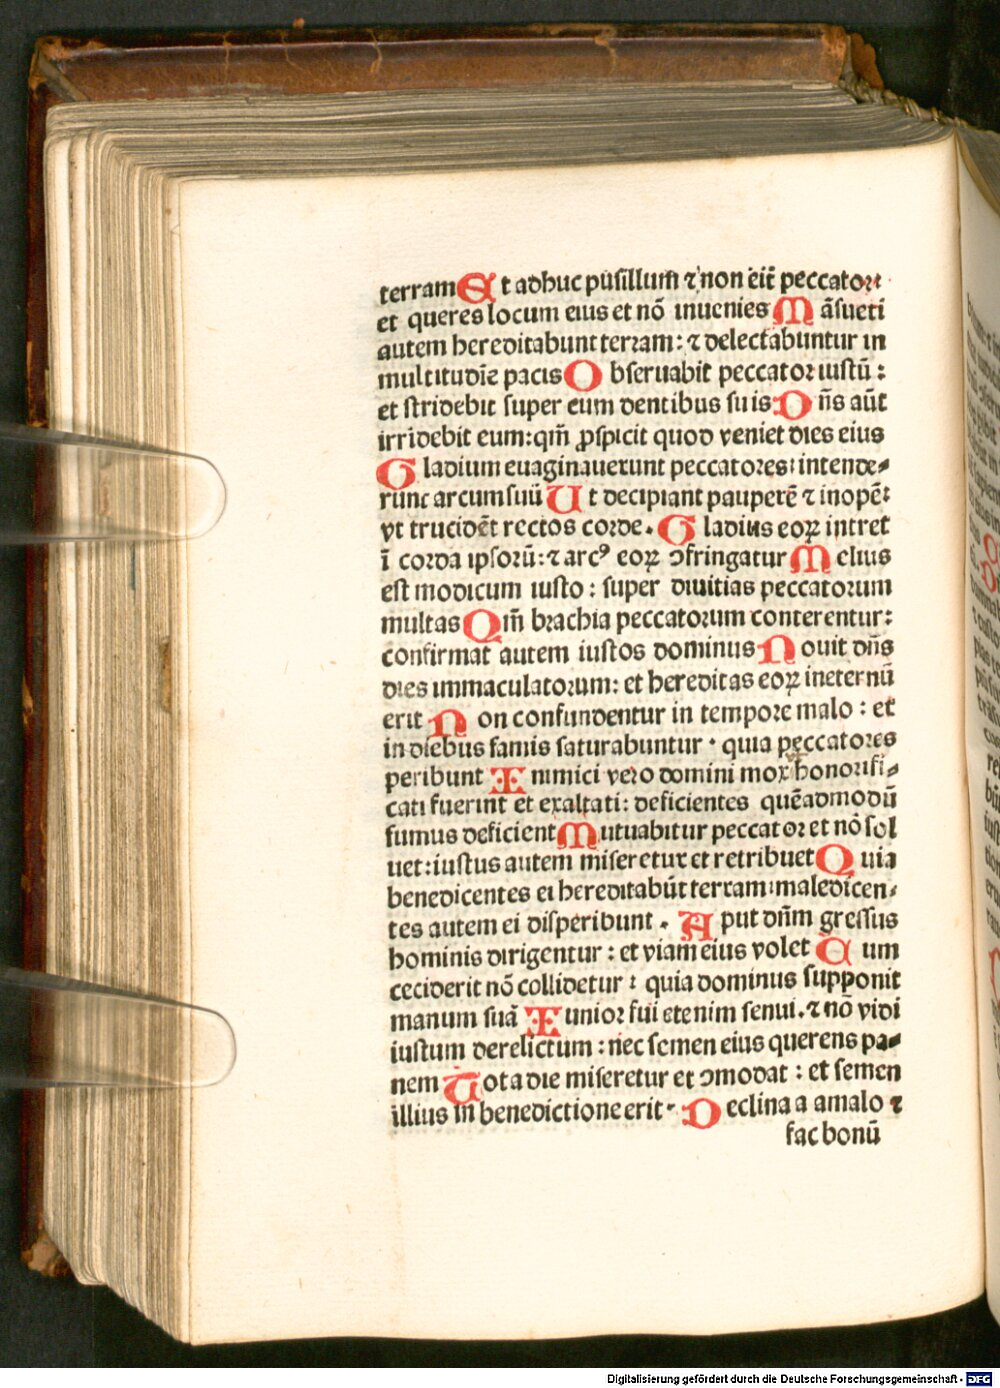 terram Et adhuc pusillum ⁊ non erit̄ peccator:
et queres locum eius et nō inuenies Māsueti
autem hereditabunt terram: ⁊ delectabuntur in
multitudīe pacis Obseruabit peccator iustū:
et stridebit super eum dentibus suis: Dn̄s aūt
irridebit eum: qm̄ ꝓspicit quod veniet dies eius
Gladium euaginauerunt peccatores: intende-
runt arcum suū Ut decipiant pauperē ⁊ inopē:
vt trucidēt rectos corde. Gladius eoꝝ intret
ī corda ipsorū: ⁊ arcꝰ eoꝝ ↄfringatur Melius
est modicum iusto: super diuitias peccatorum
multas Qm̄ brachia peccatorum conterentur:
confirmat autem iustos dominus Nouit dn̄s
dies immaculatorum: et hereditas eoꝝ in eternū
erit Non confundentur in tempore malo: et
in diebus famis saturabuntur. quia peccatores
peribunt Inimici vero domini mox honorifi-
cati fuerint et exaltati: deficientes quēadmodū
fumus deficient Mutuabitur peccator et nō sol
uet: iustus autem miseretur et retribuet Quia
benedicentes ei hereditabūt terram: maledicen-
tes autem ei disperibunt. Aput dn̄m gressus
hominis dirigentur: et viam eius volet Cum
ceciderit nō collidetur: quia dominus supponit
manum suā Iunior fui etenim senui. ⁊ nō vidi
iustum derelictum: nec semen eius querens pa-
nem Tota die miseretur et ↄmodat: et semen
illius in benedictione erit. Declina a amalo ⁊
fac bonū
Digitalisierung gefördert durch die Deutsche Forschungsgemeinschaft - DFG